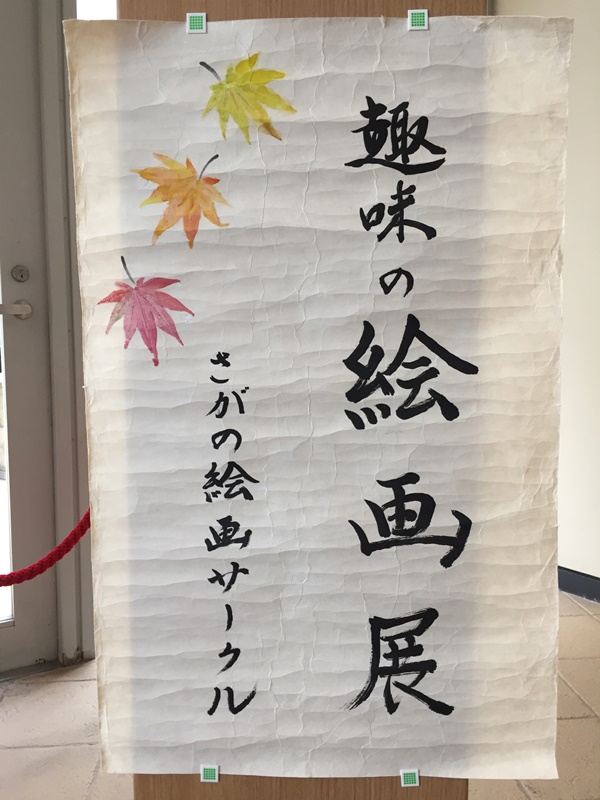 趣味の絵画展
さがの絵画サークル